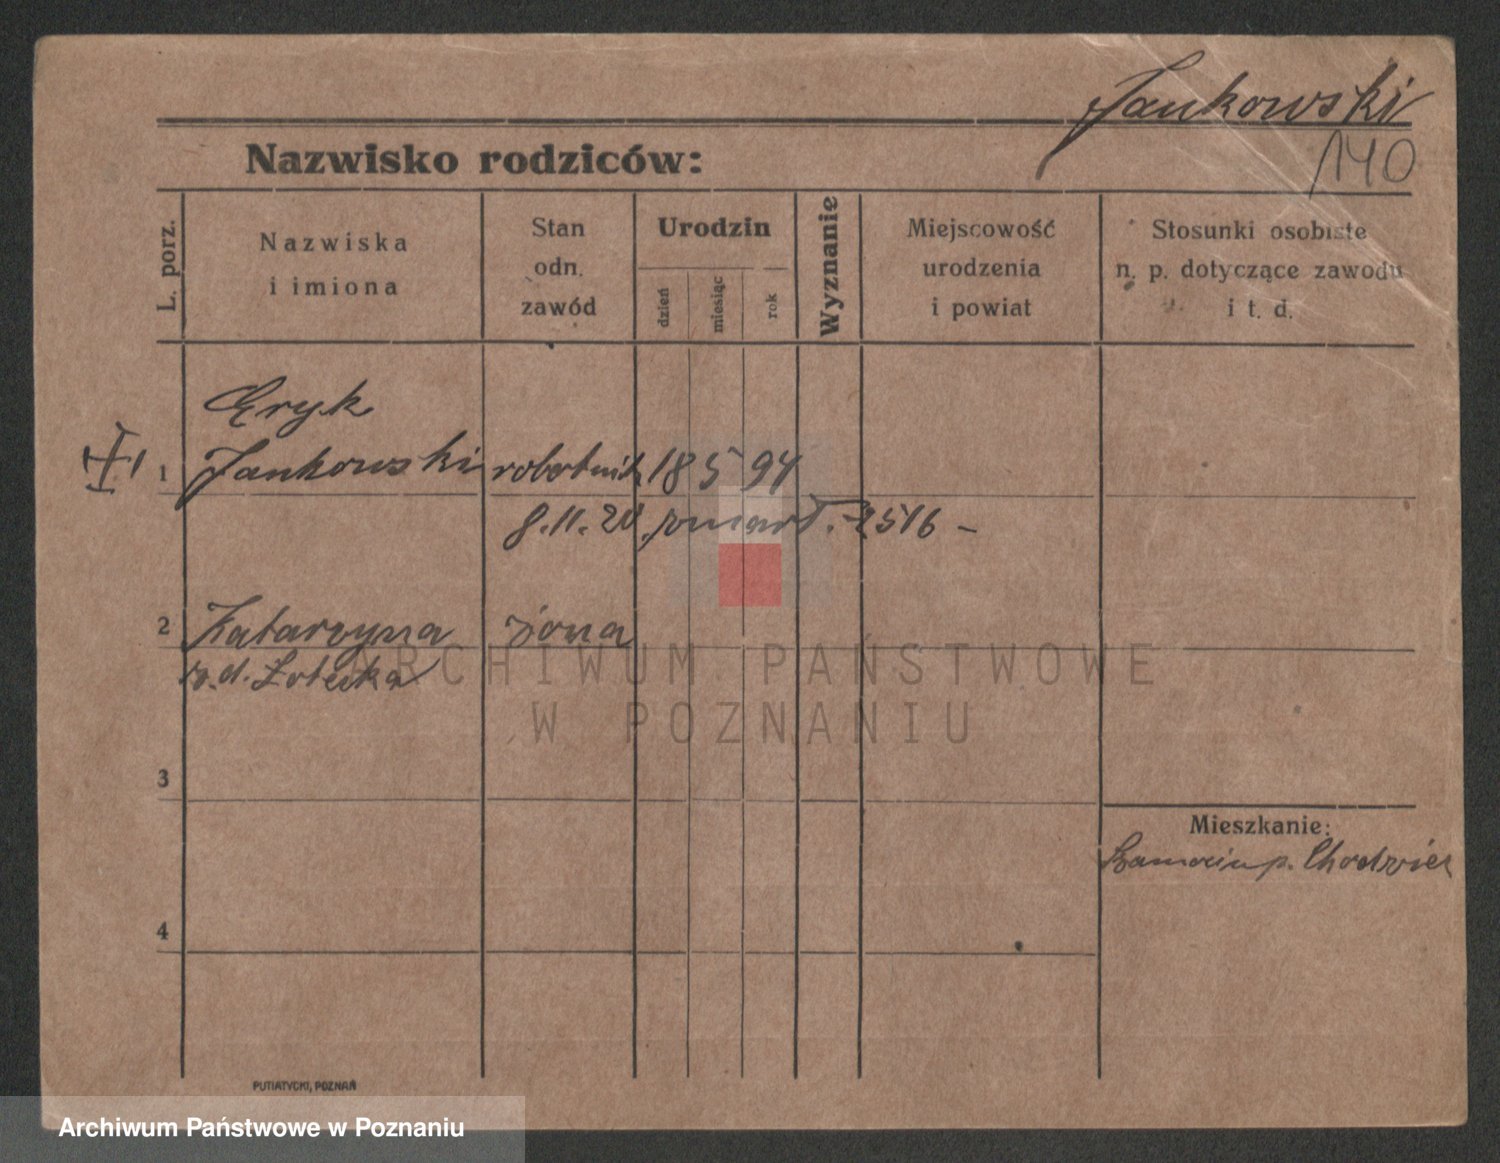 Jankowski
140
Nazwisko rodziców:
L. porz.
Nazwiska
i imiona
Stan
odn.
zawód
Urodzin
dzień
miesiąc
rok
Wyznanie
Miejscowość
urodzenia
i powiat
Stosunki osobiste
n. p. dotyczące zawodu
i t. d.
Eryk
1 Jankowski robotnik 18 5 94
8.11.20 zmarł. 2516 -
2 Katarzyna żona
z. d.
3
4
Mieszkanie:
Szamocin p. Chodzież
ARCHIWUM PAŃSTWOWE
W POZNANIU
PUTIATYCKI, POZNAŃ
Archiwum Państwowe w Poznaniu